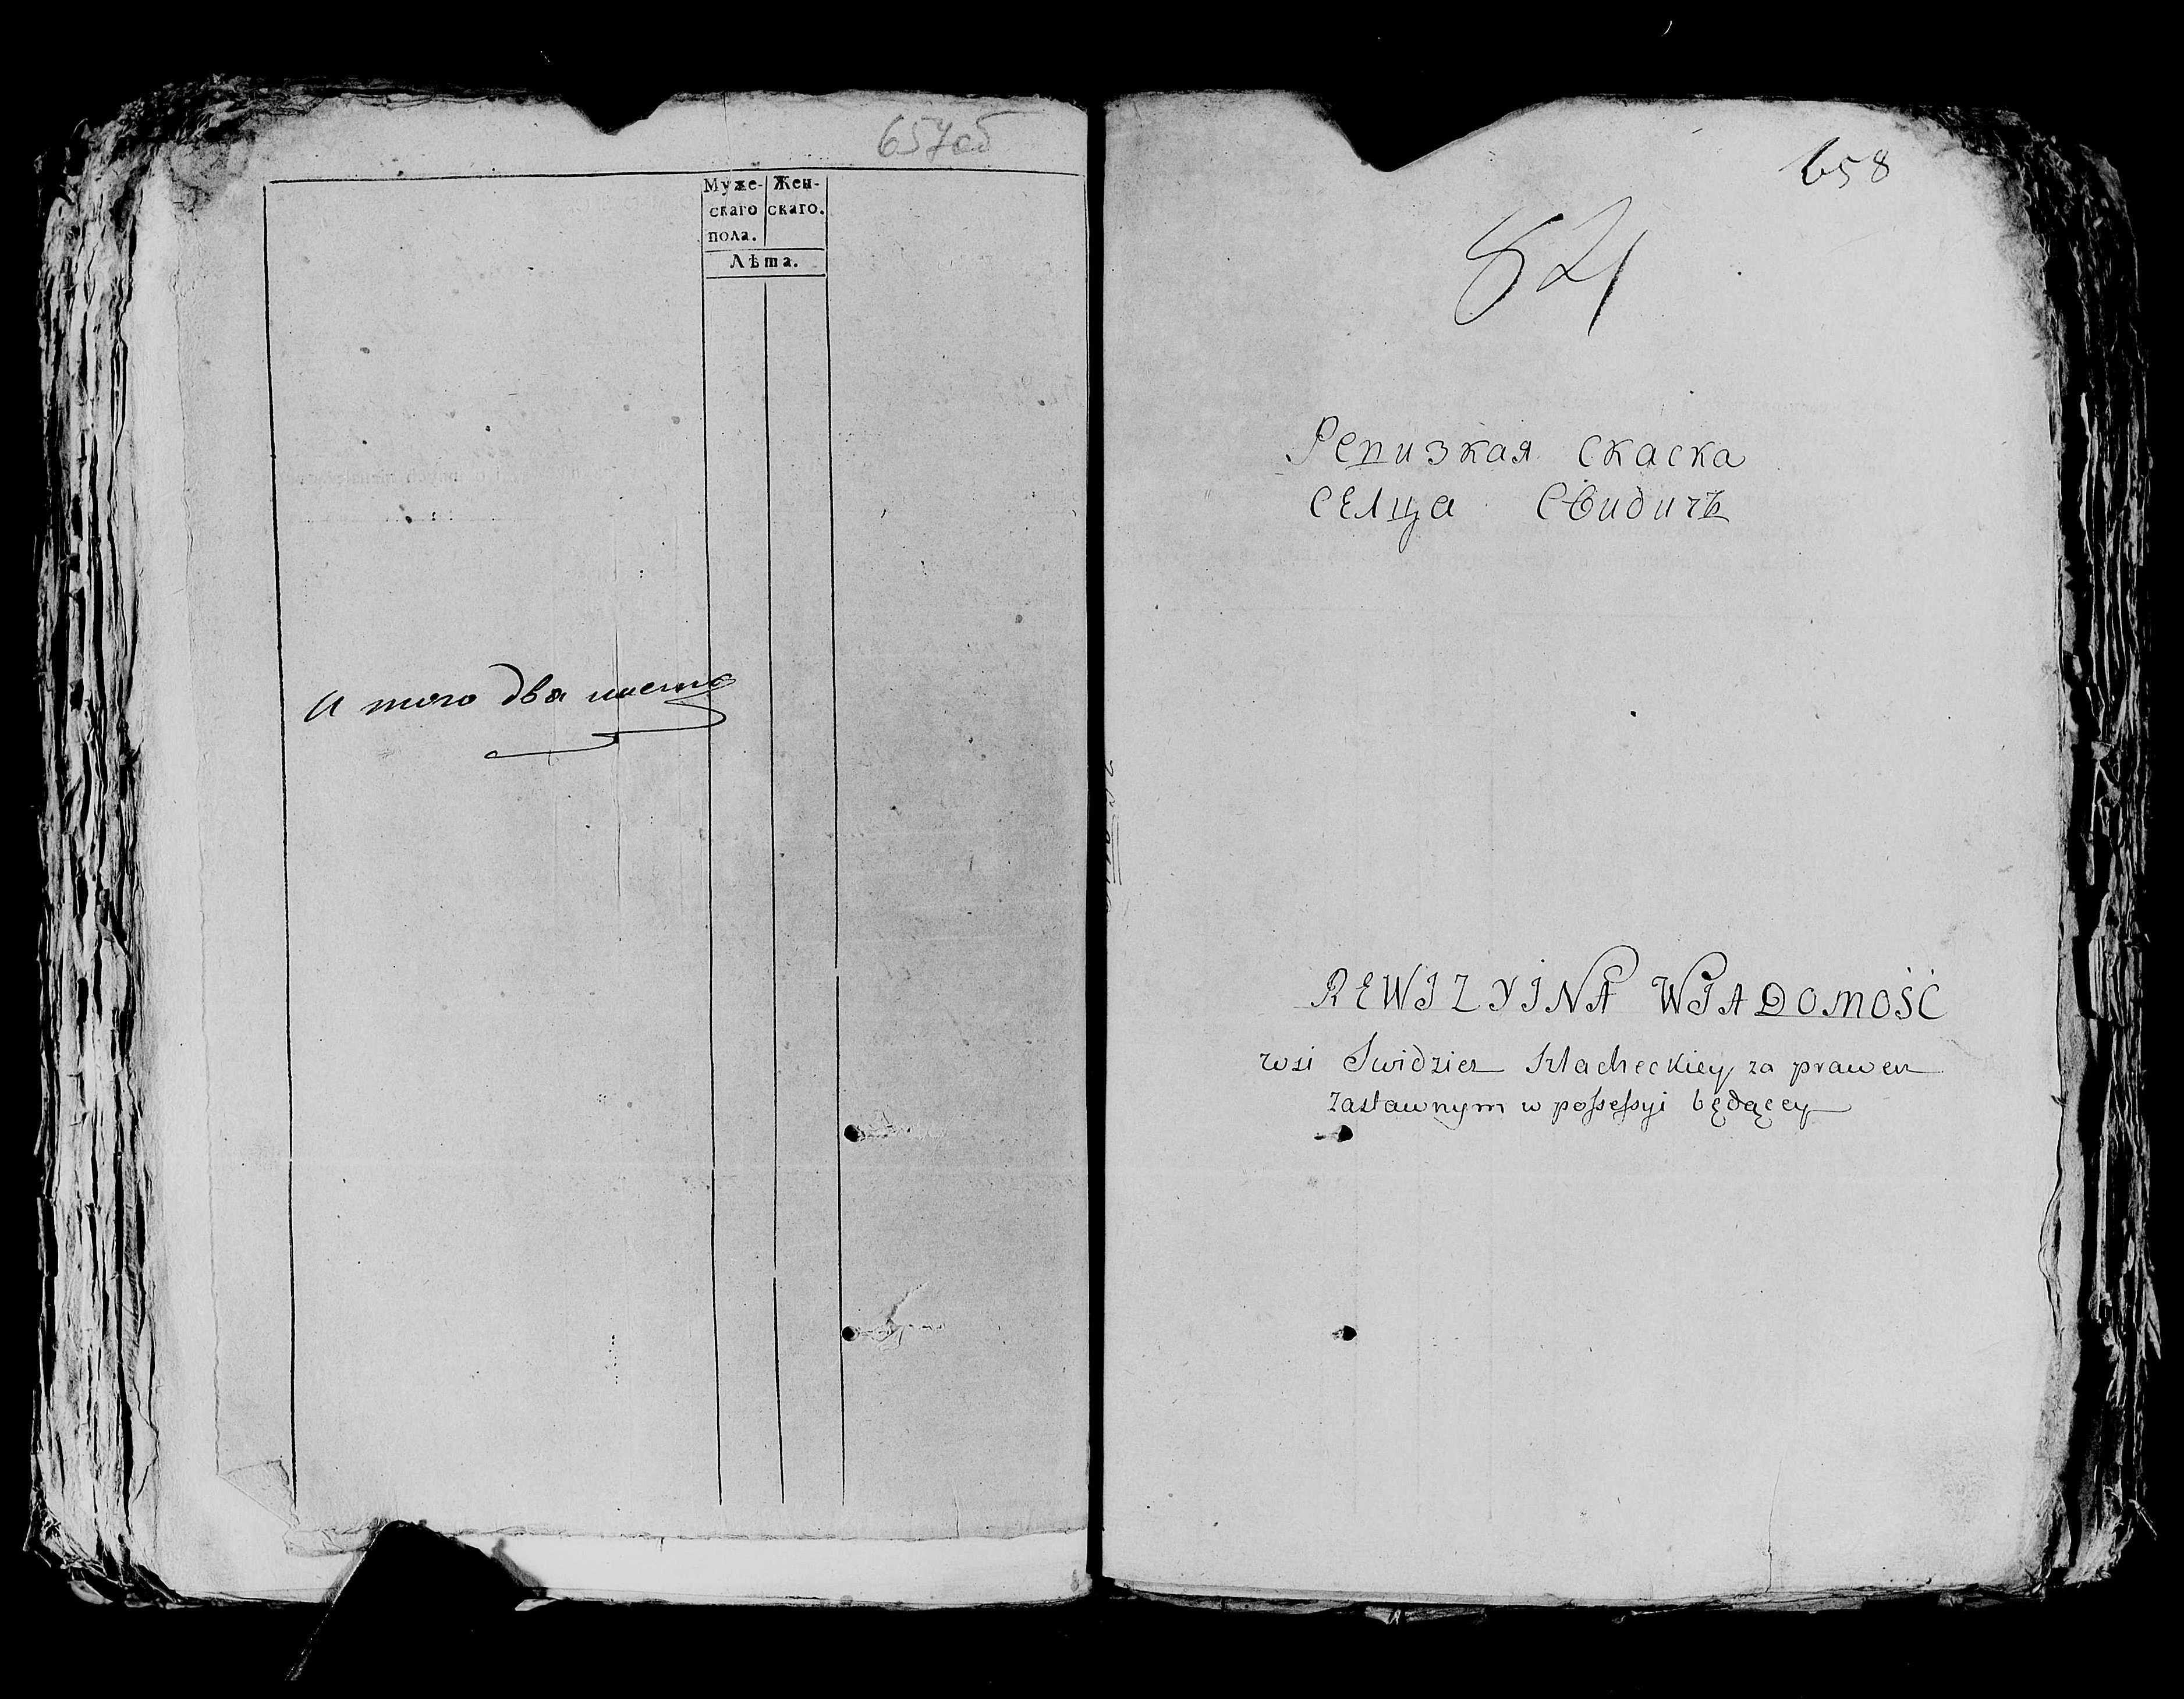 657об
Муже- Жен-
скаго скаго.
пола.
Лѣта.
И того два листа
658
Репизкая скаска
селца Свидичъ
REWIZYINA WIADOMOŚĆ
wsi Swidzicz Szlacheckiey za prawem
zastawnym w possessyi będącey